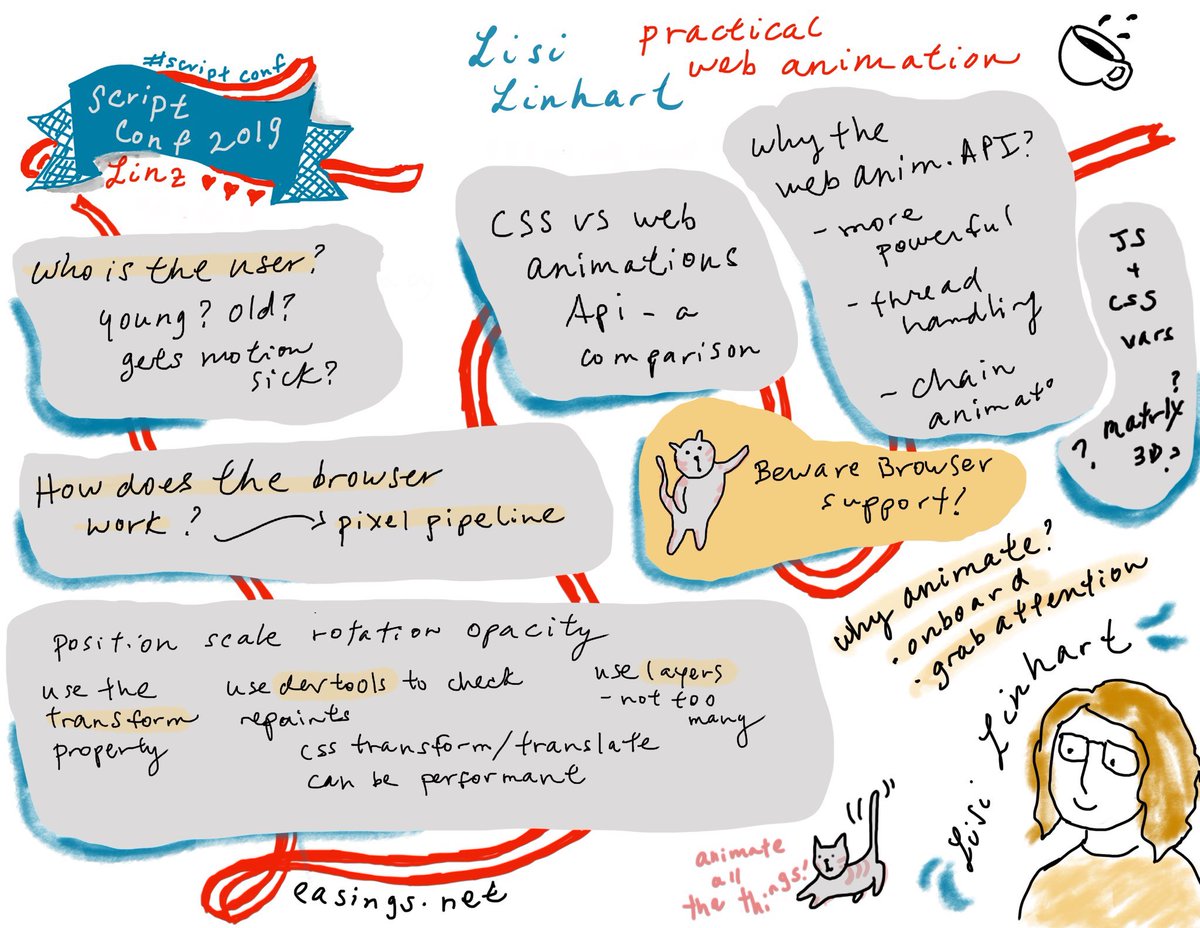 #script conf
script
conf 2019
Linz
Lisi
Linhart
practical
web animation
who is the user?
young? old?
gets motion
sick?
CSS vs web
animations
Api - a
comparison
why the
web anim. API?
- more
powerful
- thread
handling
- chain
animat
JS
+
CSS
vars
?
? matrix
3D?
How does the browser
work? pixel pipeline
Beware Browser
support!
why animate?
· onboard
· grab attention
position scale rotation opacity
use the
transform
property
use devtools to check
repaints
use layers
- not too
many
css transform/translate
can be performant
Lisi Linhart
animate
all
the things!
easings.net